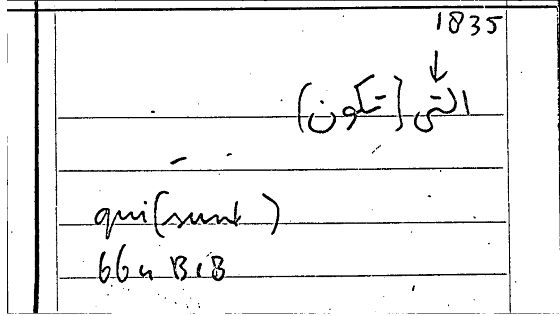 1835
↓
التى (تكون)
qui (sunt)
66a B 1B